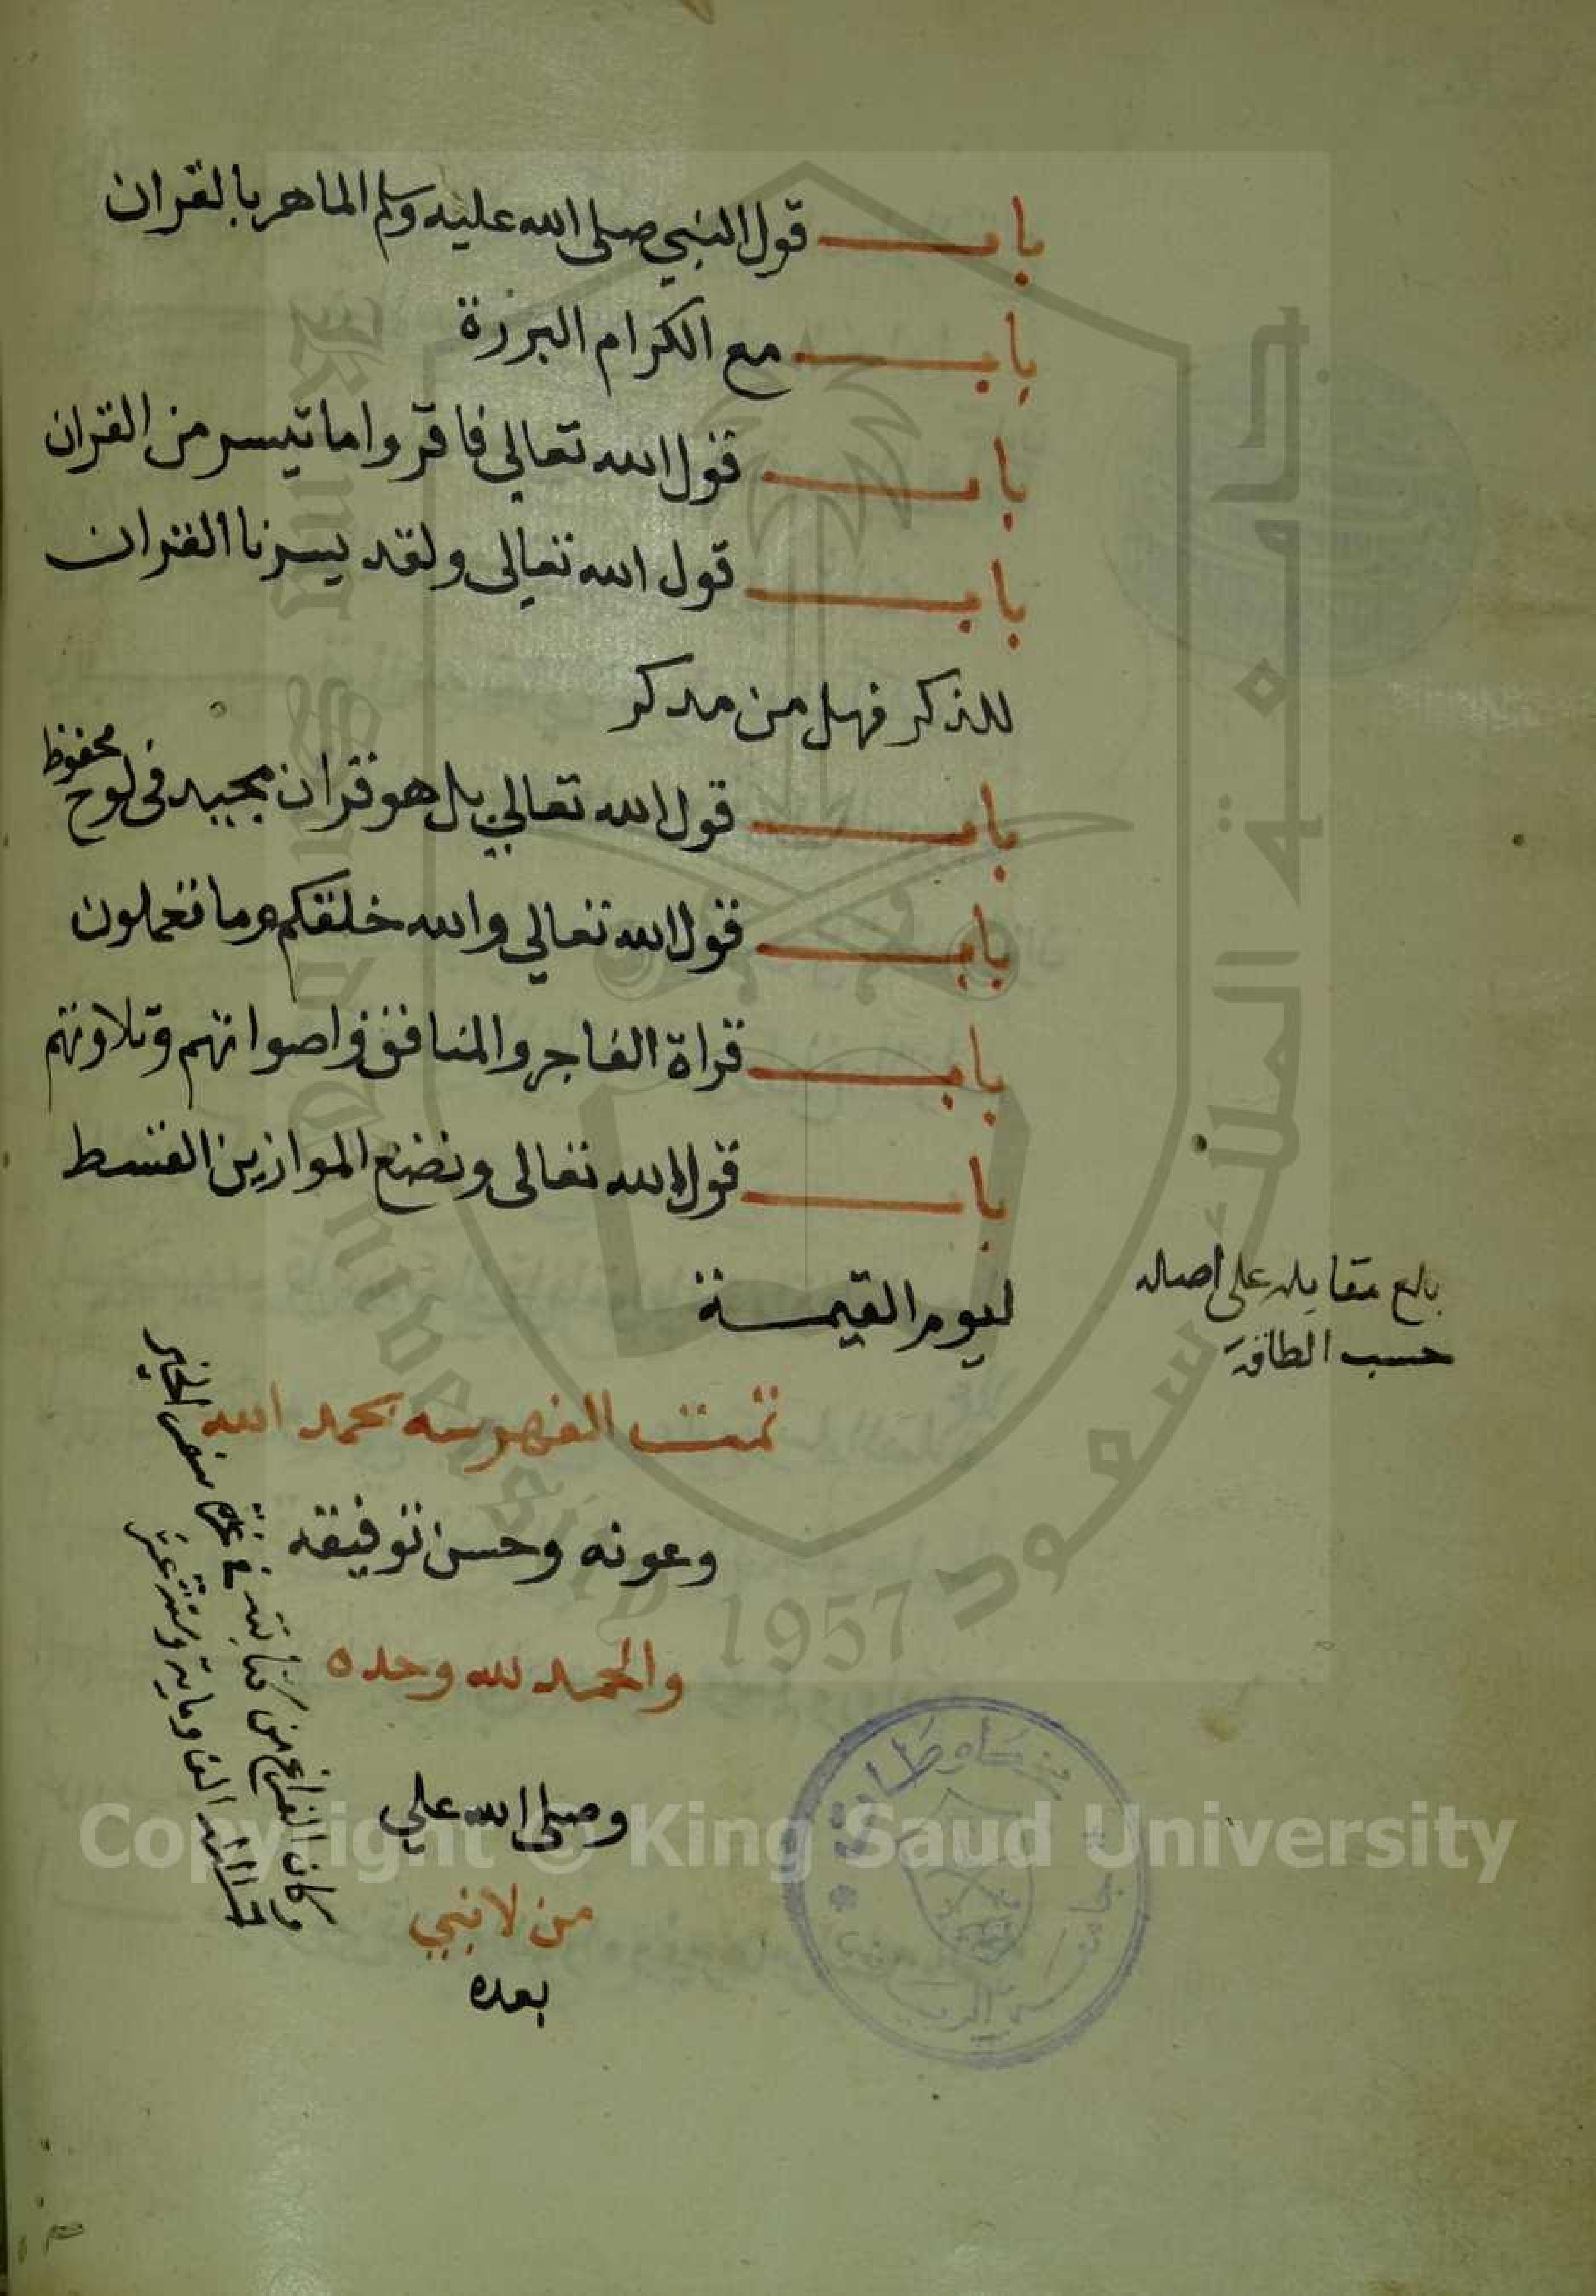 باب قول النبي صلى الله عليه وسلم الماهر بالقران
باب مع الكرام البررة
باب قول الله تعالي فاقروا ما تيسر من القران
باب قول الله تعالى ولقد يسرنا القران
للذكر فهل من مدكر
باب قول الله تعالي بل هو قران مجيد في لوح محفوظ
باب قول الله تعالي والله خلقكم وما تعملون
باب قراة الفاجر والمنافق واصواتهم وتلاوتهم
باب قول الله تعالى ونضع الموازين القسط
ليوم القيمة
بلغ مقابله على اصله
حسب الطاقة
تمت الفهرسه بحمد الله
وعونه وحسن توفيقه
والحمد لله وحده
وصلى الله علي
من لا نبي
بعده
كان الفراغ من كتابته
الف وماية
جامعة الملك سعود
King Saud University
1957
Copyright © King Saud University